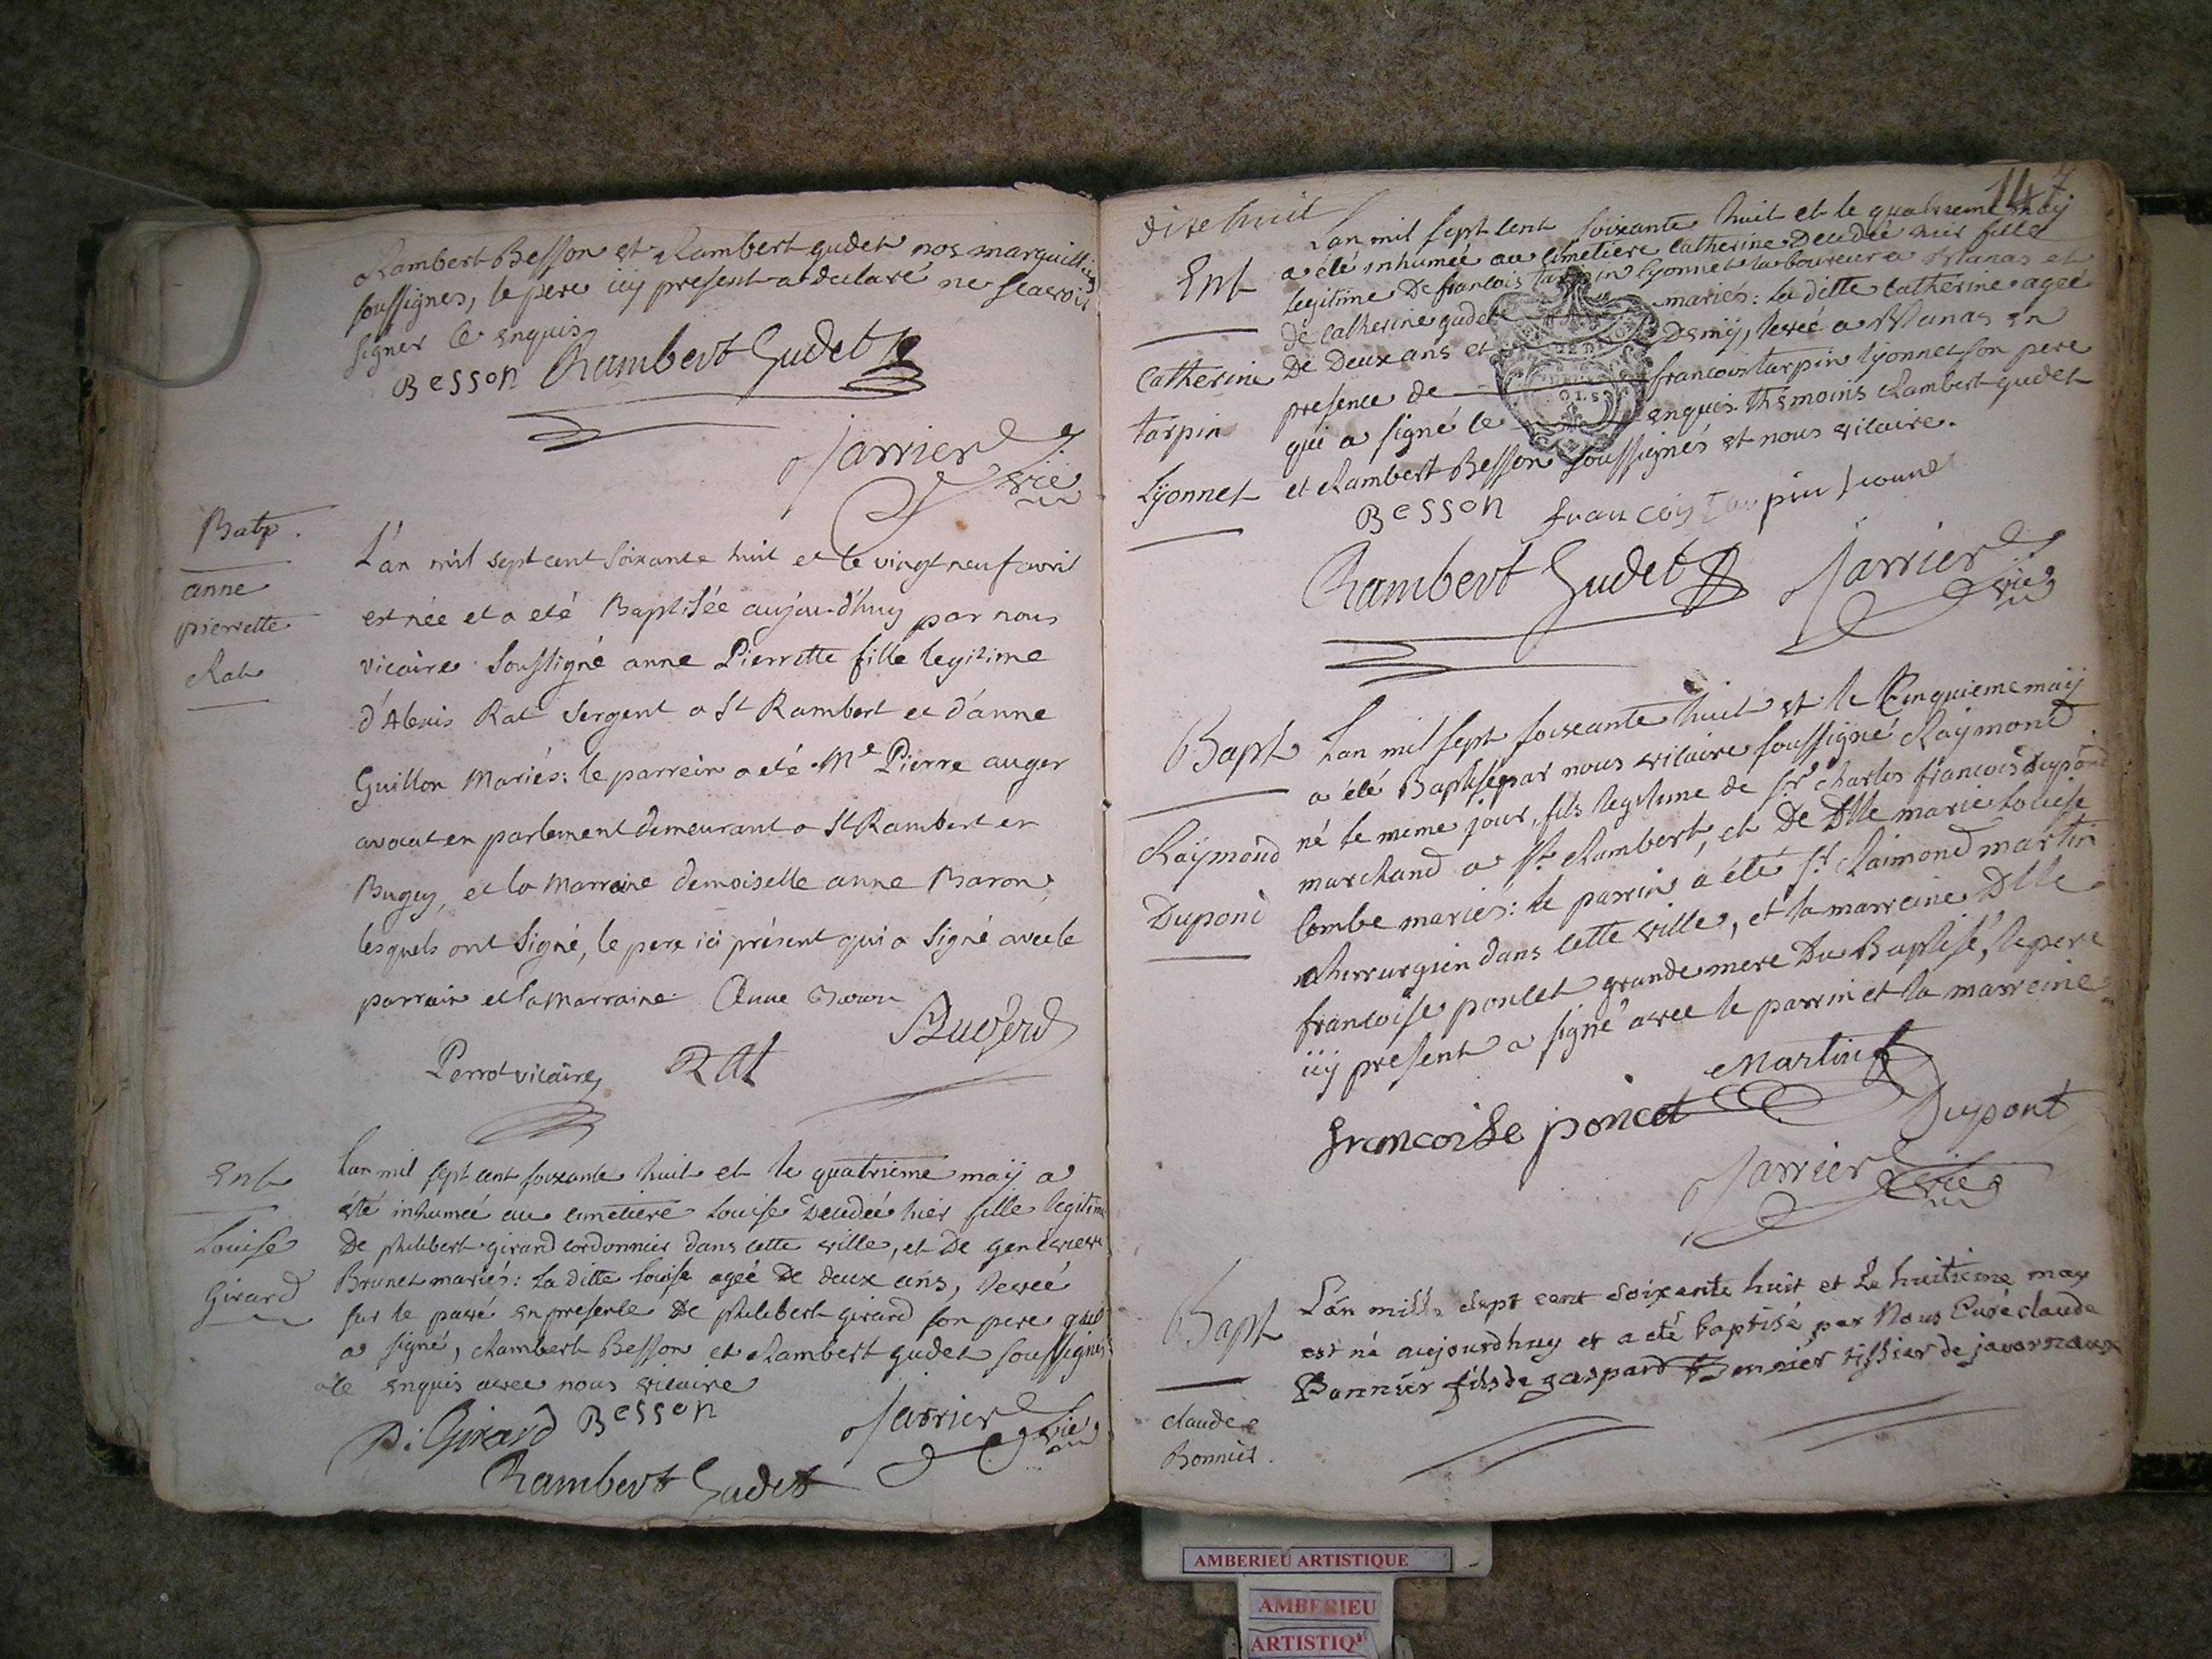 Rambert Besson et Rambert gudet nos marguilliers
soussignes, le pere icy present a declaré ne scavoir
signer ce enquis
Besson Rambert Gudet
Jarrier vic
Batp.
anne
pierrette
Rat
L'an mil sept cent soixante huit et le vingt neuf avril
est née et a eté Baptisée aujourd'huy par nous
vicaire soussigné anne Pierrette fille legitime
d'Alexis Rat sergent a St Rambert et d'anne
Guillon Mariés: le parrein a eté Me Pierre auger
avocat en parlement demeurant a St Rambert en
Bugey, et la Marraine demoiselle anne Baron,
lesquels ont signé, le pere ici présent qui a signé avec le
parrain et la marraine. Anne Baron
Perrot vicaire Rat
Ent
Louise
Girard
Lan mil sept cent soixante huit et le quatrieme maÿ a
été inhumeé au cimetiere Louise Decedeé hier fille legitime
De philibert girard cordonnier dans cette ville, et De genevieve
Brunet mariés: la ditte louise ageé De deux ans, leveé
sur le pavé en presence De philibert girard son pere qui
a signé, Rambert Besson et Rambert gudet soussignés
de enquis avec nous vicaire
P. Girard Besson Jarrier vic
Rambert Gudet
147
dixe huit
Ent
Catherine
tarpin
Lyonnet
Lan mil sept cent soixante huit et le quatrieme may
a été inhumée au cimetiere catherine Decedeé hier fille
legitime De francois tarpin lyonnet laboureur a Blanas et
de catherine gudet mariés: la ditte catherine ageé
De Deux ans et Demÿ, leveé a Blanas en
presence de francois tarpin lyonnet son pere
qui a signé le enquis. themoins Rambert gudet
et Rambert Besson soussignés et nous vicaire.
Besson francois tarpin lionnet
Rambert Gudet Jarrier vic
Bapt
Raÿmond
Dupond
Lan mil sept soixante huit et le Cinquieme maÿ
a été Baptisé par nous vicaire soussigné Raÿmond
né le meme jour, fils legitime de sr charles francois Dupond
marchand a St Rambert, et De Dlle marie louise
Combe mariés: le parrin a été sr Raimond martin
chirurgien dans cette ville, et la marreine Dlle
francoise poncet grande mere Du Baptisé, le pere
icy present a signé avec le parrin et la marreine
Martin
francoise poncet Dupont
Jarrier vic
Bapt
claude
Bonnier.
L'an mille sept cent soixante huit et Le huitieme may
est né aujourdhuy et a eté baptisé par Nous Curé claude
Bonnier fils de gaspard Bonnier tissier de javornoux
AMBERIEU ARTISTIQUE
AMBERIEU
ARTISTIQ